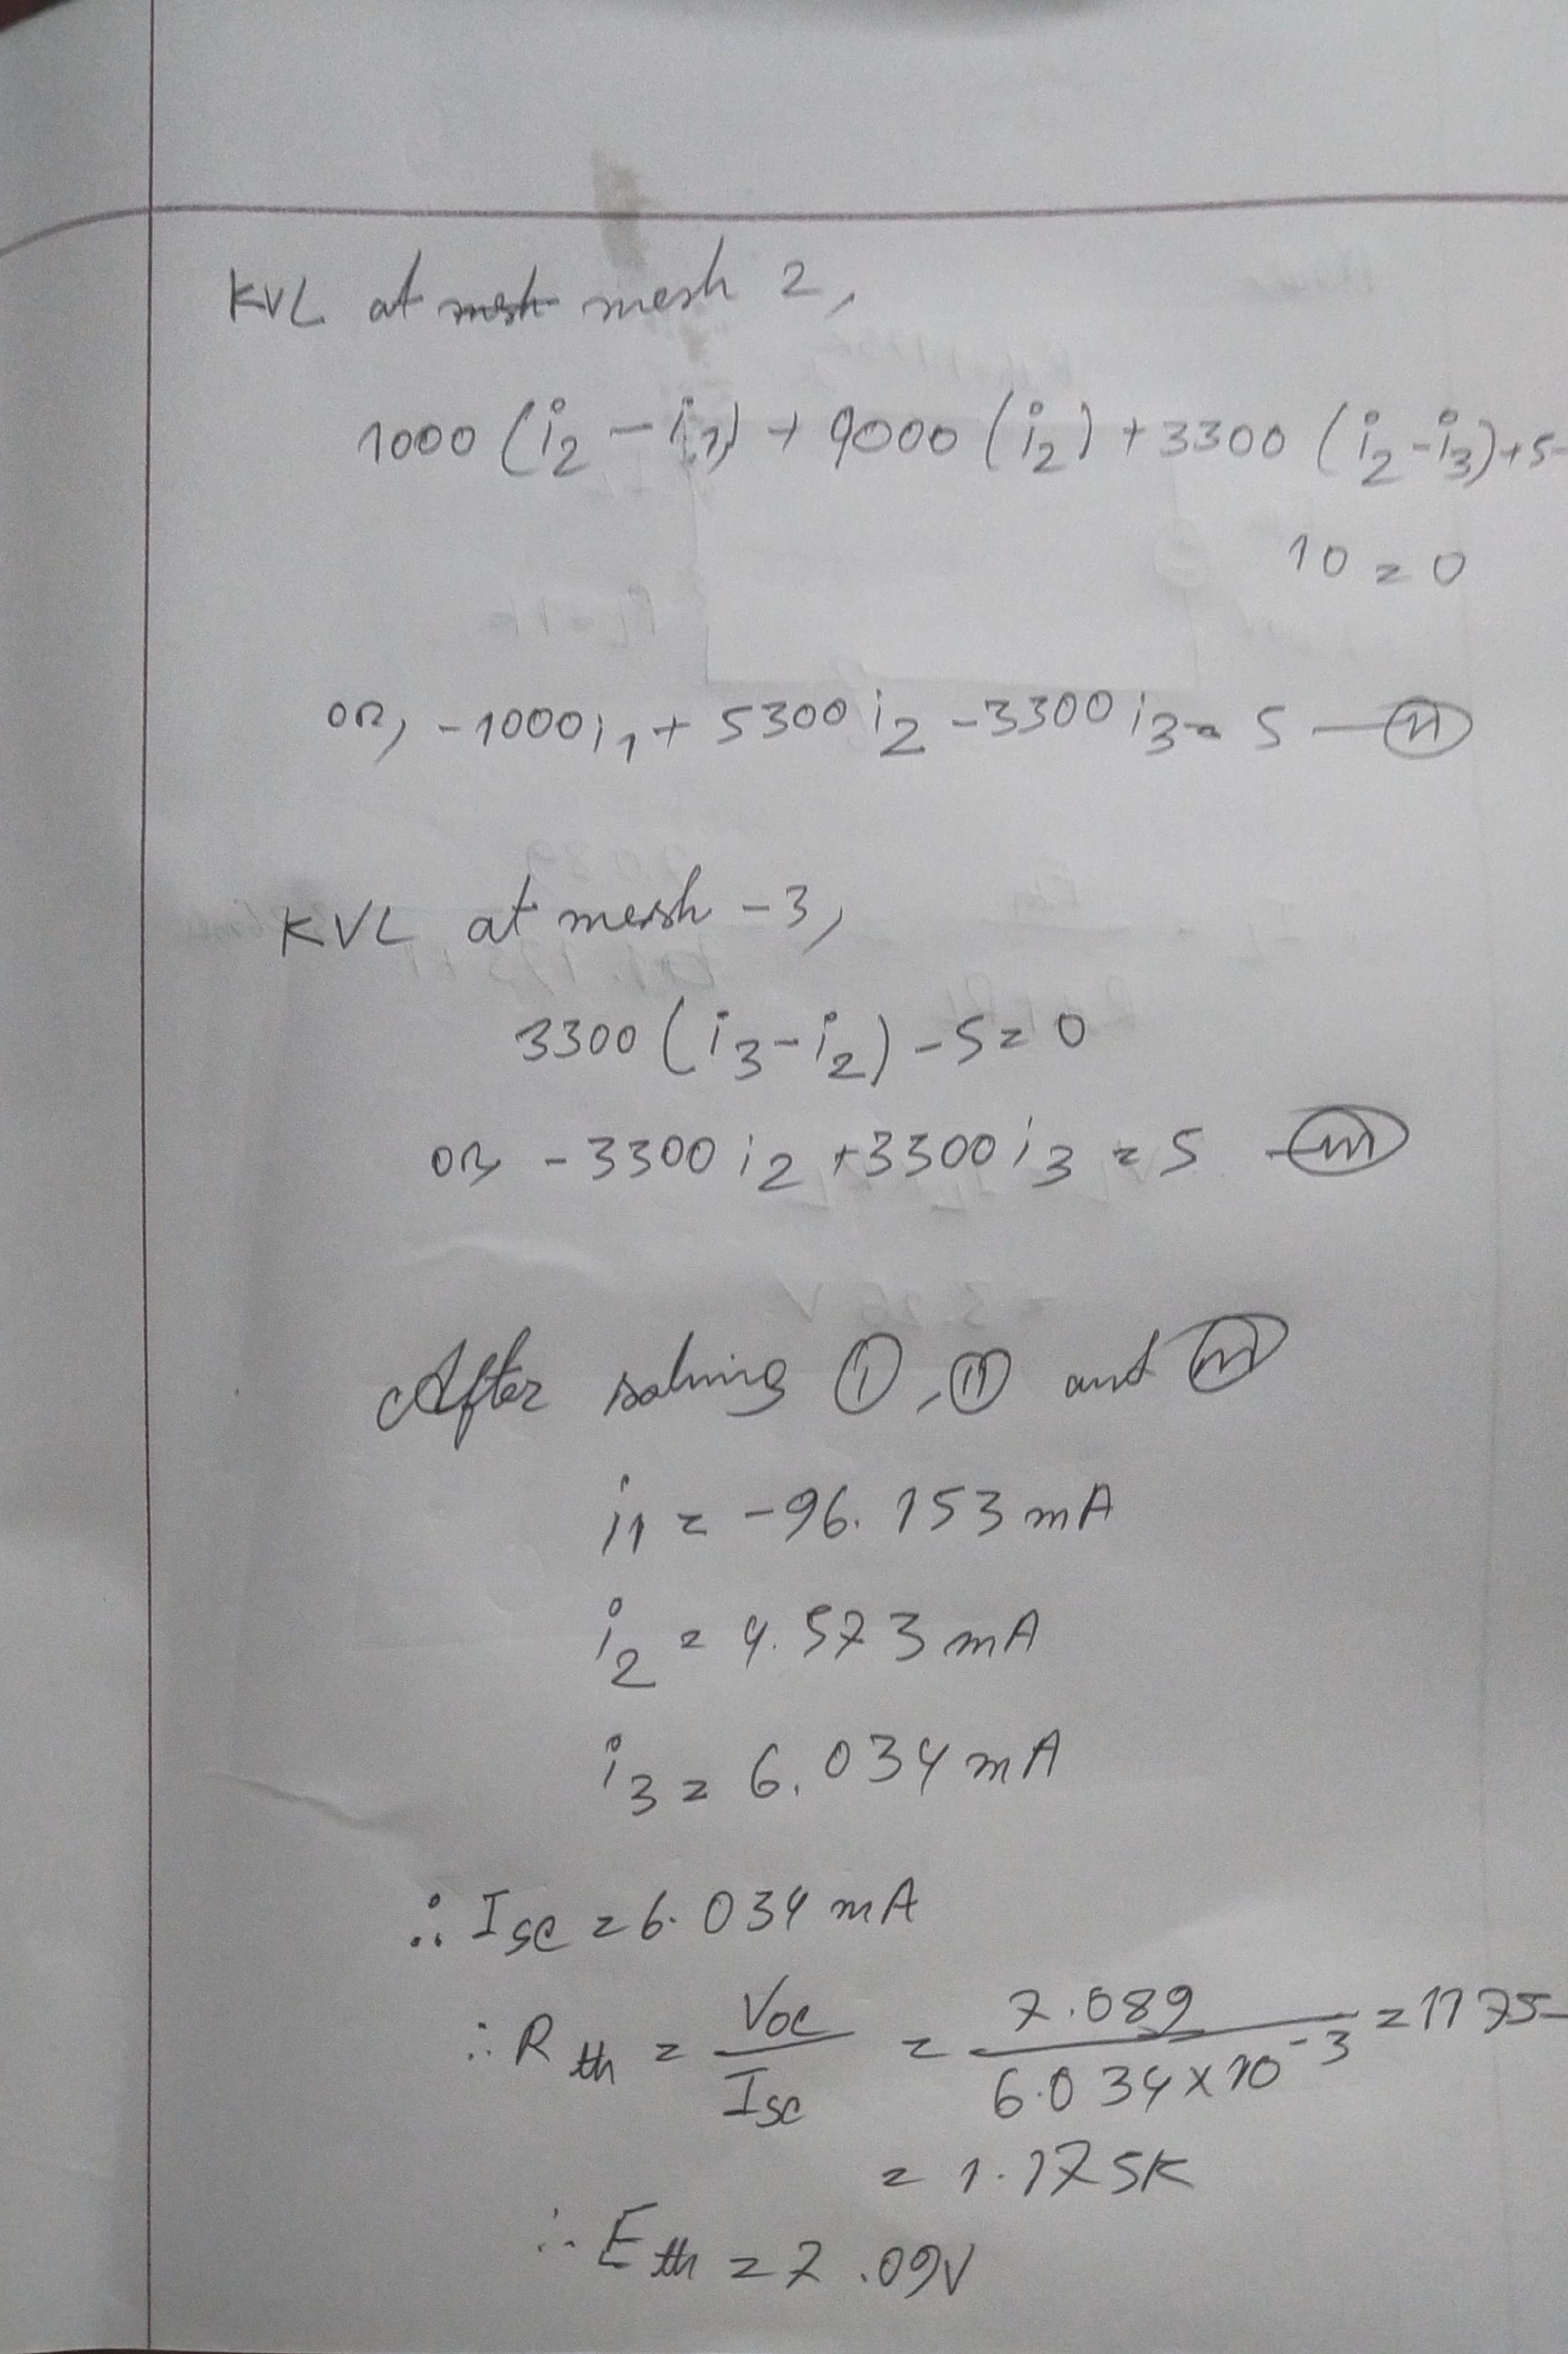 KVL at mesh mesh 2,
1000 (i₂ - i₁) + 9000 (i₂) + 3300 (i₂-i₃)+5-
10 = 0
or, -1000i₁ + 5300 i₂ - 3300 i₃ = 5 — (ii)
KVL at mesh -3,
3300 (i₃-i₂) - 5 = 0
or -3300 i₂ +3300 i₃ = 5 — (iii)
After solving (i), (ii) and (iii)
i₁ = -96.153 mA
i₂ = 4.573 mA
i₃ = 6.034 mA
∴ Isc = 6.034 mA
∴ Rth = Voc / Isc = 7.089 / 6.034 x 10⁻³ = 1175
= 1.175K
∴ Eth = 7.09V